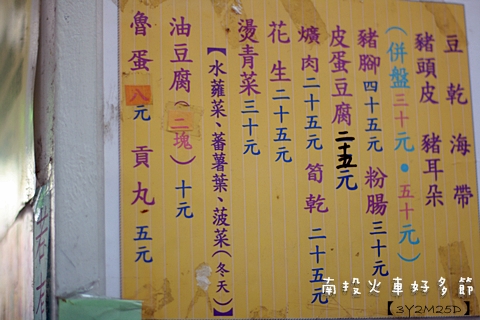 豆乾 海帶
豬頭皮 豬耳朵
（併盤三十元•五十元）
豬腳四十五元 粉腸三十元
皮蛋豆腐二十五元
爌肉二十五元 筍乾二十五元
花生二十五元
燙青菜三十元
【水蕹菜、蕃薯葉、菠菜（冬天）】
油豆腐（二塊）十元
魯蛋八元 貢丸五元
南投火車好多節
【3Y2M25D】